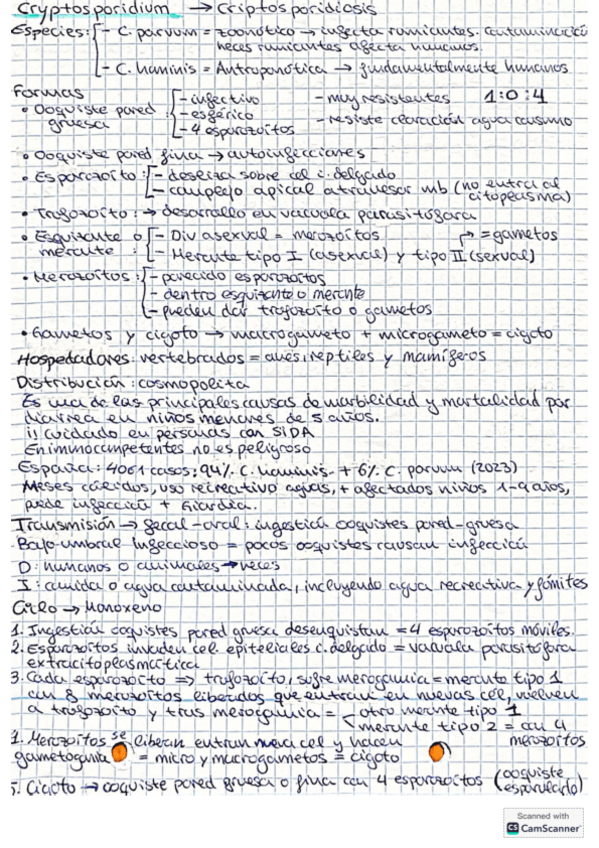 Cryptosporidium → Criptosporidiosis
Especies: - C. parvum = zoonótico → infecta rumiantes. contaminación
heces rumiantes afecta humanos.
- C. hominis = Antroponótica → fundamentalmente humanos
Formas
• Ooquiste pared gruesa : - infectivo - muy resistentes 1:0:4
- esférico - resiste cloración agua consumo
- 4 esporozoítos
• Ooquiste pared fina → autoinfecciones
• Esporozoíto: - desliza sobre cel i. delgado
- complejo apical atravesar mb (no entra al citoplasma)
• Trofozoíto: → desarrollo en vacuola parasitófora
• Esquizonte o meronte : - Div asexual = merozoítos → = gametos
- Meronte tipo I (asexual) y tipo II (sexual)
• Merozoítos : - parecido esporozoítos
- dentro esquizonte o meronte
- pueden dar trofozoíto o gametos
• Gametos y cigoto → macrogameto + microgameto = cigoto
Hospedadores: vertebrados = aves, reptiles y mamíferos
Distribución: cosmopolita
Es una de las principales causas de morbilidad y mortalidad por
diarrea en niños menores de 5 años.
¡! cuidado en personas con SIDA
En inmunocompetentes no es peligroso
España: 4061 casos: 94% C. hominis + 6% C. parvum (2023)
Meses cálidos, uso recreativo aguas, + afectados niños 1-9 años,
puede infección + Giardia.
Transmisión → fecal-oral: ingestión ooquistes pared-gruesa
Bajo umbral infeccioso = pocos ooquistes causan infección
D: humanos o animales → heces
I: comida o agua contaminada, incluyendo agua recreativa y fómites
Ciclo → Monoxeno
1. Ingestión ooquistes pared gruesa desenquistan = 4 esporozoítos móviles.
2. Esporozoítos invaden cel. epiteliales i. delgado = vacuola parasitófora
extracitoplasmática
3. Cada esporozoíto ⇒ trofozoíto, sufre merogonia = meronte tipo 1
con 8 merozoítos liberados que entran en nuevas cél, vuelven
a trofozoíto y tras merogonia = otro meronte tipo 1
meronte tipo 2 = con 4 merozoítos
1. Merozoítos se liberan entran nueva cel y hacen
gametogonia = micro y macrogametos = cigoto
5. Cigoto → ooquiste pared gruesa o fina con 4 esporozoítos (ooquiste esporulado)
Scanned with
CS CamScanner